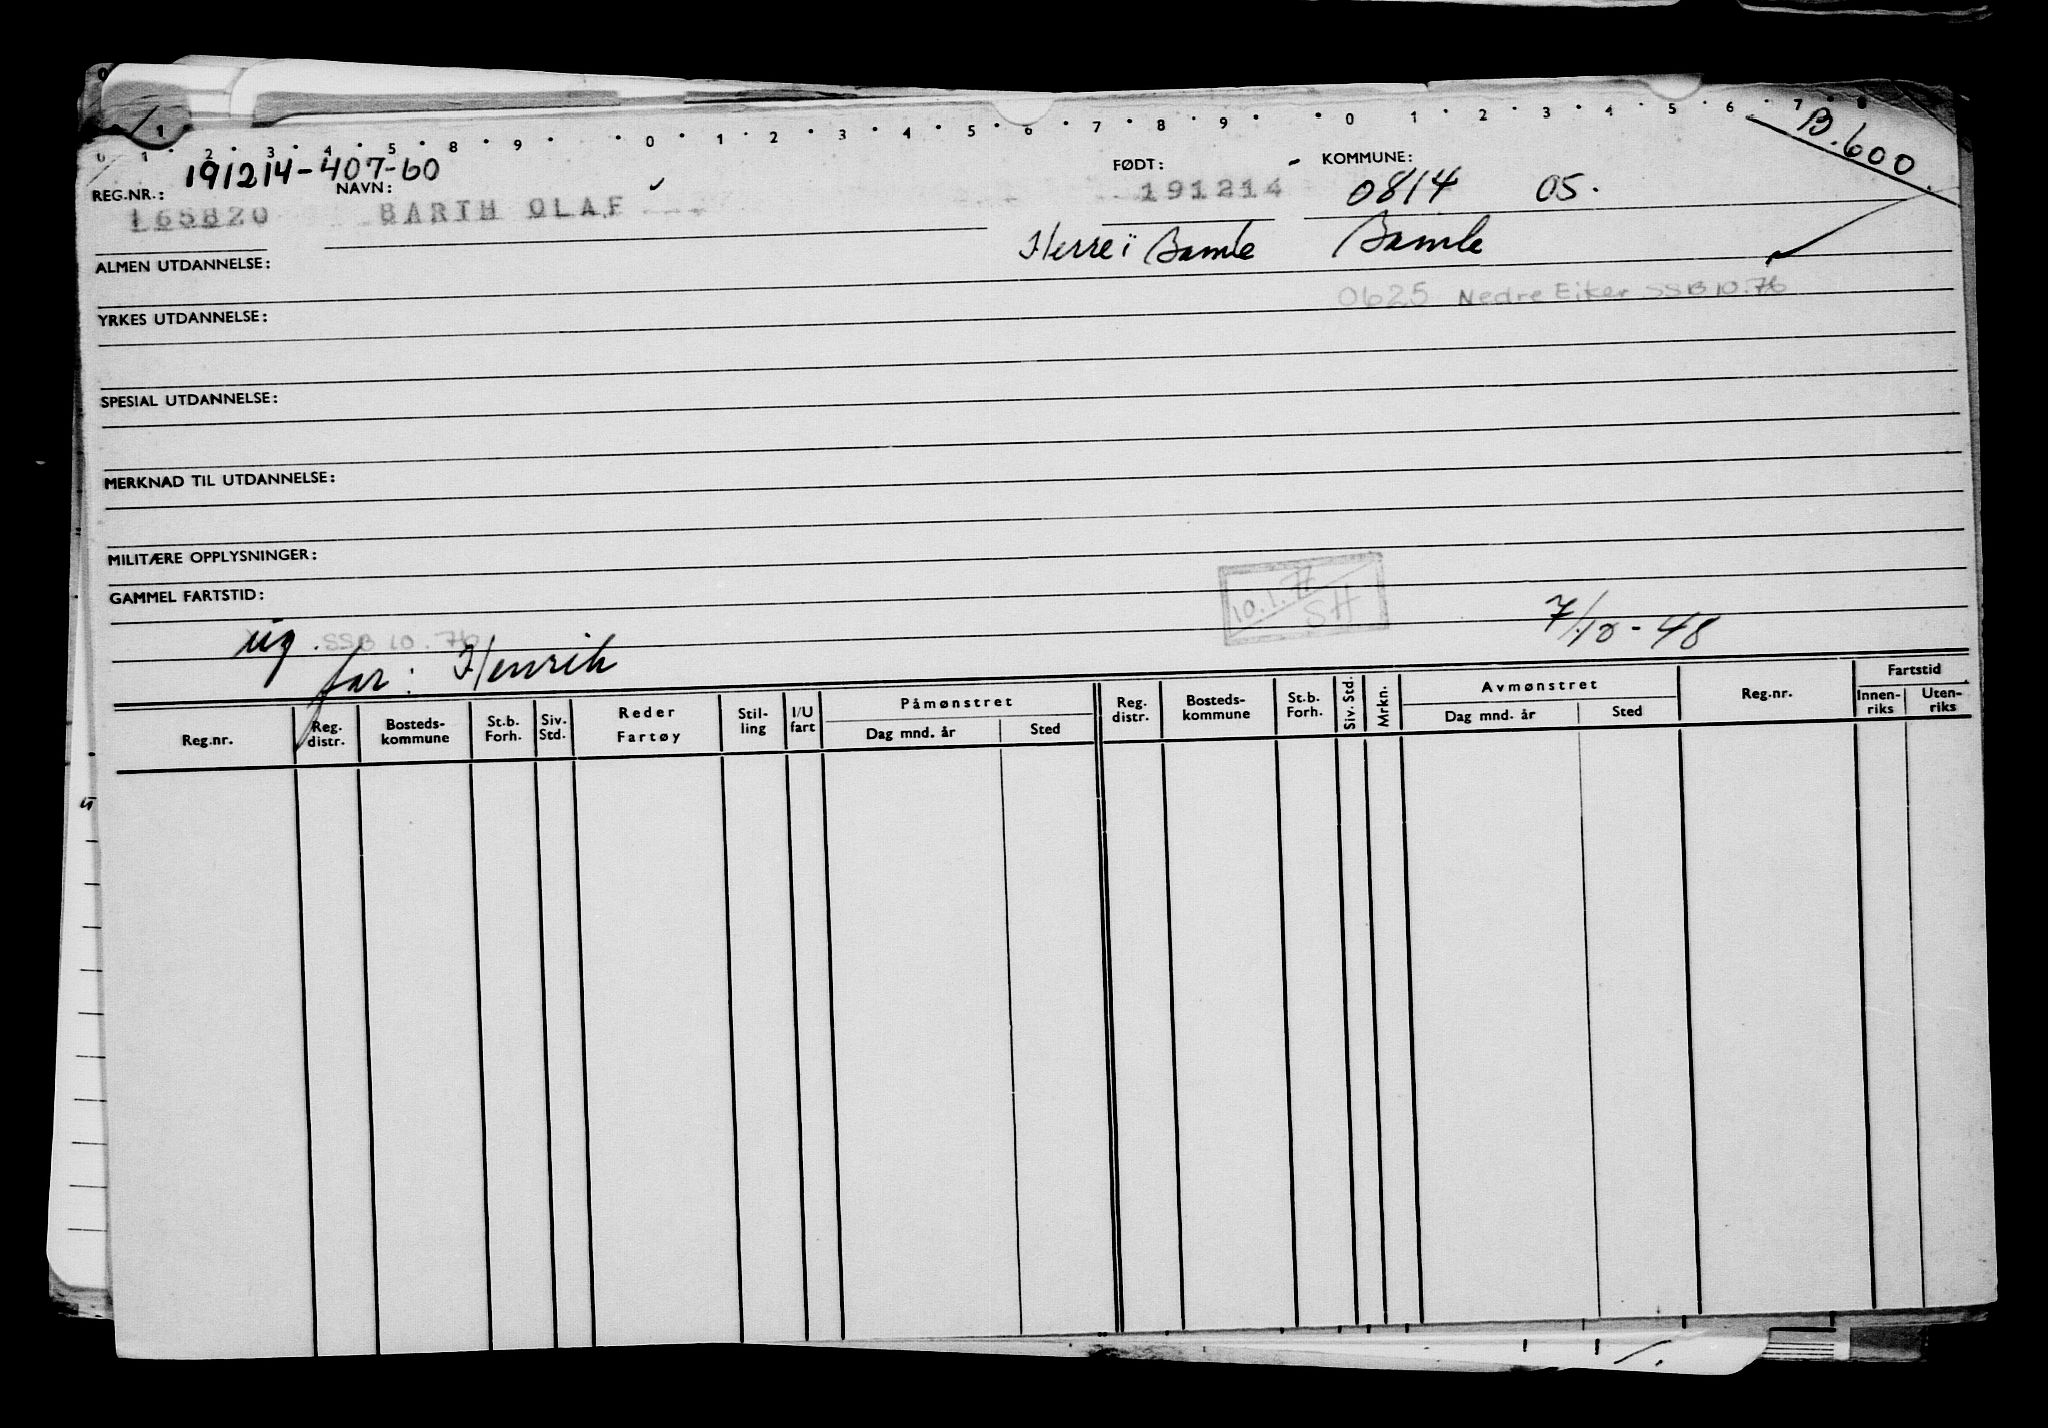 0 1 2 3 4 5 6 7 8 9 0 1 2 3 4 5 6 7 8 9 0 1 2 3 4 5 6 7 8
B.600
REG.NR.: 191214-407-60 NAVN: FØDT: KOMMUNE:
165820 BARTH OLAF 191214 0814 05.
Herre i Bamle Bamle
ALMEN UTDANNELSE:
0625 Nedre Eiker SSB 10.76
YRKES UTDANNELSE:
SPESIAL UTDANNELSE:
MERKNAD TIL UTDANNELSE:
MILITÆRE OPPLYSNINGER:
10.1.77
SH
GAMMEL FARTSTID:
ug. SSB 10.76 7/10-48
far: Henrik
Reg.nr. Reg. distr. Bosteds-kommune St.b. Forh. Siv. Std. Reder Fartøy Stil-ling I/U fart Påmønstret Dag mnd. år Sted Reg. distr. Bosteds-kommune St.b. Forh. Siv. Std. Mrkn. Avmønstret Dag mnd. år Sted Reg.nr. Fartstid Innen-riks Uten-riks